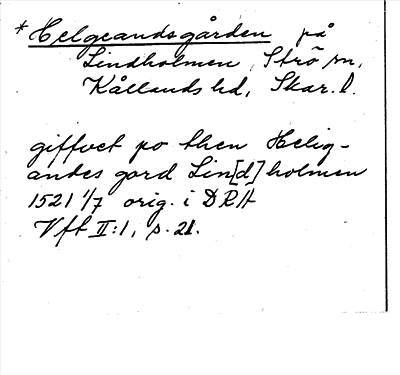 * Helgeandsgården på
Lindholmen, Strö sn,
Kållands hd, Skar. l.
giffvet po then Helig-
andes gord Lin[d]holmen
1521 1/7 orig. i DRA
Vft II:1, s. 21.